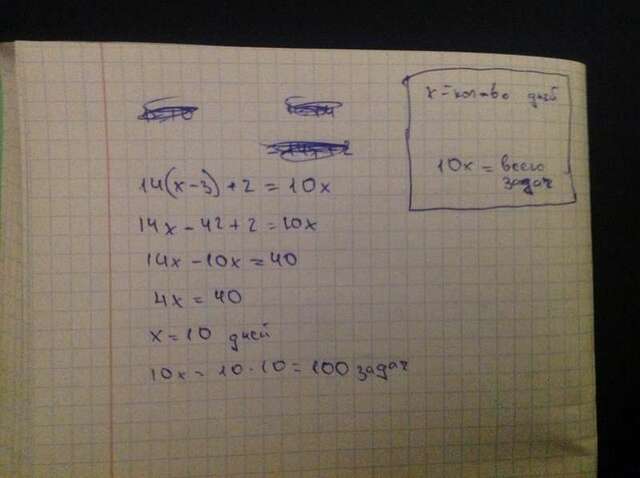 x - кол-во дней
10x = всего
задач
14(x-3)+2=10x
14x-42+2=10x
14x-10x=40
4x=40
x=10 дней
10x=10·10=100 задач